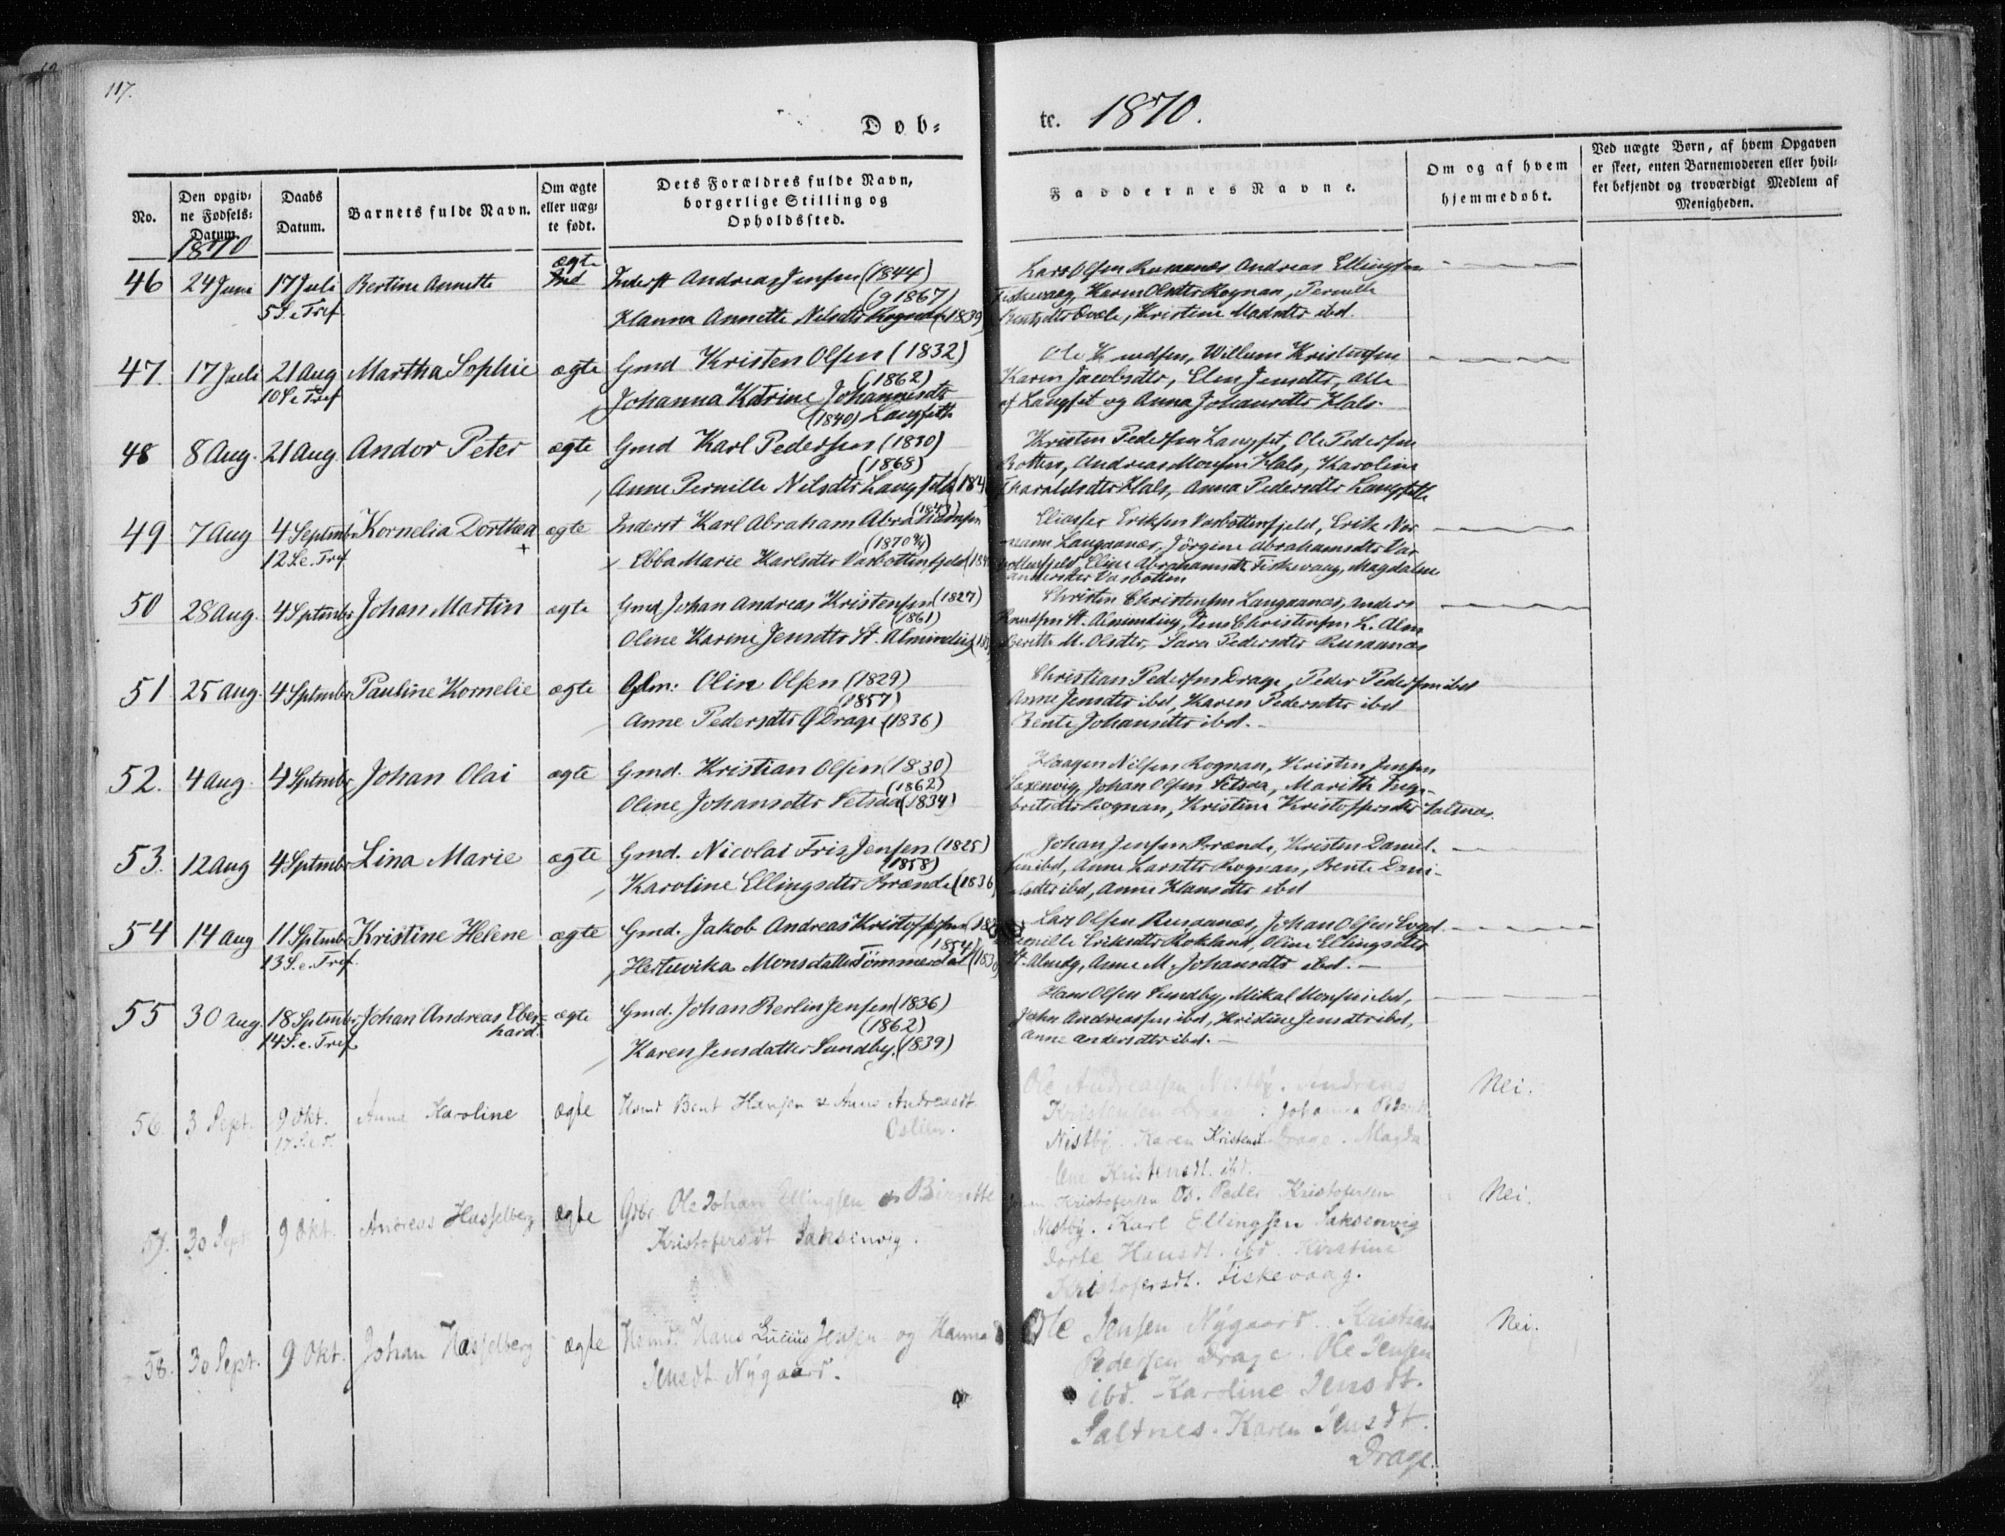 117.
Døb-
te. 1870.
No.
Den opgiv-
ne Fødsels-
Datum.
Daabs
Datum.
Barnets fulde Navn.
Om ægte
eller uæg-
te født.
Dets Forældres fulde Navn,
borgerlige Stilling og
Opholdssted.
Faddernes Navne.
Om og af hvem
hjemmedøbt.
Ved uægte Børn, af hvem Opgaven
er skeet, enten Barnemoderen eller hvil-
ket bekjendt og troværdigt Medlem af
Menigheden.
1870
46 24 Juni 17 Juli Bertine Annette ægte Inderst Andreas Jensen (1844)
5 S. e Tref. (g 1867)
Hanna Annette Nilsdtr Rognan (1839)
Lars Olsen Rusaanæs, Andreas Ellingsen
Fiskevaag, Karen Olsdtr Rognan, Pernille
Bentsdtr Evæle, Kristine Madsdtr ibd.
47. 17 Juli 21 Aug Martha Sophie ægte Gmd Kristen Olsen (1832)
10 S. e Tref (1862)
Johanna Katrine Johannesdtr
(1840) Langseth
Ole Knudsen, Willum Kristensen
Karen Jacobsdtr, Elen Jensdtr, alle
af Langset og Anna Johansdtr Hals.
48 8 Aug. 21 Aug. Andor Peter ægte Gmd Karl Pedersen (1830)
(1868)
Anne Pernille Nilsdtr Langseth (184
Kristen Pedersen Langset, Ole Pedersen
Botten, Andreas Monsen Hals, Karoline
Tharaldsdtr Hals, Anna Pedersdtr Langseth
49 7 Aug 4 Septmbr Kornelia Dorthea ægte Inderst Karl Abraham Abrahamsen
12 S. e. Tref. + (1843)
(1870)
Ebba Marie Karlsdtr Vasbottenfjeld (184
Eliasser Eriksen Vasbottenfjeld, Erik Nor-
mann Langaanæs, Jörgine Abrahamsdtr Vas-
bottenfjeld, Eline Abrahamsdtr Fiskevaag, Magdalene
Andersdtr Vasbotten
50 28 Aug. 4 Septmbr Johan Martin ægte Gmd Johan Andreas Kristensen (1827)
(1861)
Oline Karine Jensdtr St. Alminding (18
Christen Christensen Langaanæs, Anders
Knudsen St. Alminding, Jens Christensen L. Alm
Berith M. Olsdtr, Sara Pedersdtr Rusaanæs
51 25 Aug. 4 Septmbr Pauline Kornelie ægte Gdm: Olin Olsen (1829)
(1857)
Anne Pedersdtr Drage (1836)
Christian Pedersen Drage, Peder Pedersen ibd
Anne Jensdtr ibd, Karen Pedersdtr ibd
Bente Johansdtr ibd.
52. 4 Aug. 4 Septmbr Johan Olai ægte Gmd. Kristian Olsen (1830)
(1862)
Oline Johansdtr Setsaa (1834)
Haagen Nilsen Rognan, Kristen Jensen
Saxenvig, Johan Olsen Setsaa, Marith Inge-
bretsdtr Rognan, Kristine Kristoffersdtr Saltnæs.
53. 12 Aug 4 Septmbr Lina Marie ægte Gmd. Nicolai Fris Jensen (1825)
(1858)
Karoline Ellingsdtr Brænde (1836
Johan Jensen Brænde, Kristen Daniel-
sen ibd, Anne Larsdtr Rognan, Bente Dani-
elsdtr ibd, Anne Hansdtr ibd
54 14 Aug 11 Septmbr Kristine Helene ægte Gmd. Jakob Andreas Kristoffersen (18
13 S. e. Tref. 1854
Hertevika Monsdatter Tømmerdal (183
Lars Olsen Rusaanæs, Johan Olsen Evgd.
Pernille Eriksdtr Rokland, Oline Ellingsdtr
St. Almdg, Anne M. Johansdtr ibd.
55 30 Aug. 18 Septmbr Johan Andreas Eber- ægte Gmd. Johan Berlin Jensen (1836)
14 S. e. Tref. hard. (1862)
Karen Jensdatter Sundby. (1839)
Hans Olsen Sundby, Mikal Monsen ibd,
John Andreassen ibd, Kristine Jensdtr ibd,
Anne Andersdtr ibd.
56. 3 Sept. 9 Okt. Anna Karoline ægte Hsmd Bent Hansen & Anne Andreasdt.
17 S. e. T.
Ole Andreassen Nestby. Andreas
Johanna Peders
Nestby. Karen Kristensd Drage. Magda
lene Kristensdt. ibd.
Nei.
57. 30 Sept. 9 Okt. Andreas Hasselberg ægte Gdbr Ole Johan Ellingsen & Birgitte
Kristofersdt Saksenvig.
Kristofersen Peder Kristofersen
Nestby. Karl Ellingsen Saksenvig
Dorte Hansdt. ibd. Kirstine
Kristofersdt. Fiskevaag.
Nei.
58. 30 Sept. 9 Okt. Johan Hasselberg ægte Hsmd. Hans Lucius Jensen og Hanna
Jensdt Nygaard.
Ole Jensen Nygaard. Kristian
Pedersen Drage. Ole Jensen
ibd. Karoline Jensdt.
Saltnes. Karen Jensdt.
Drage.
Nei.